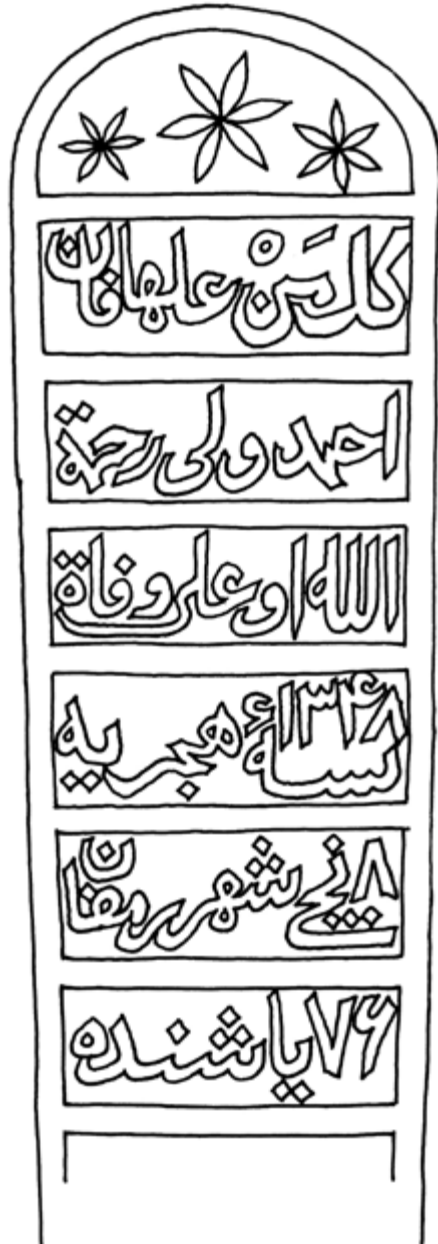 كل مَنْ علها فان
احمد ولى رحمة
الله اوعلى وفاة
١٣٤٨ سنهٔ هجريه
٨ نجى شهر رمضان
٧۶ ياشنده